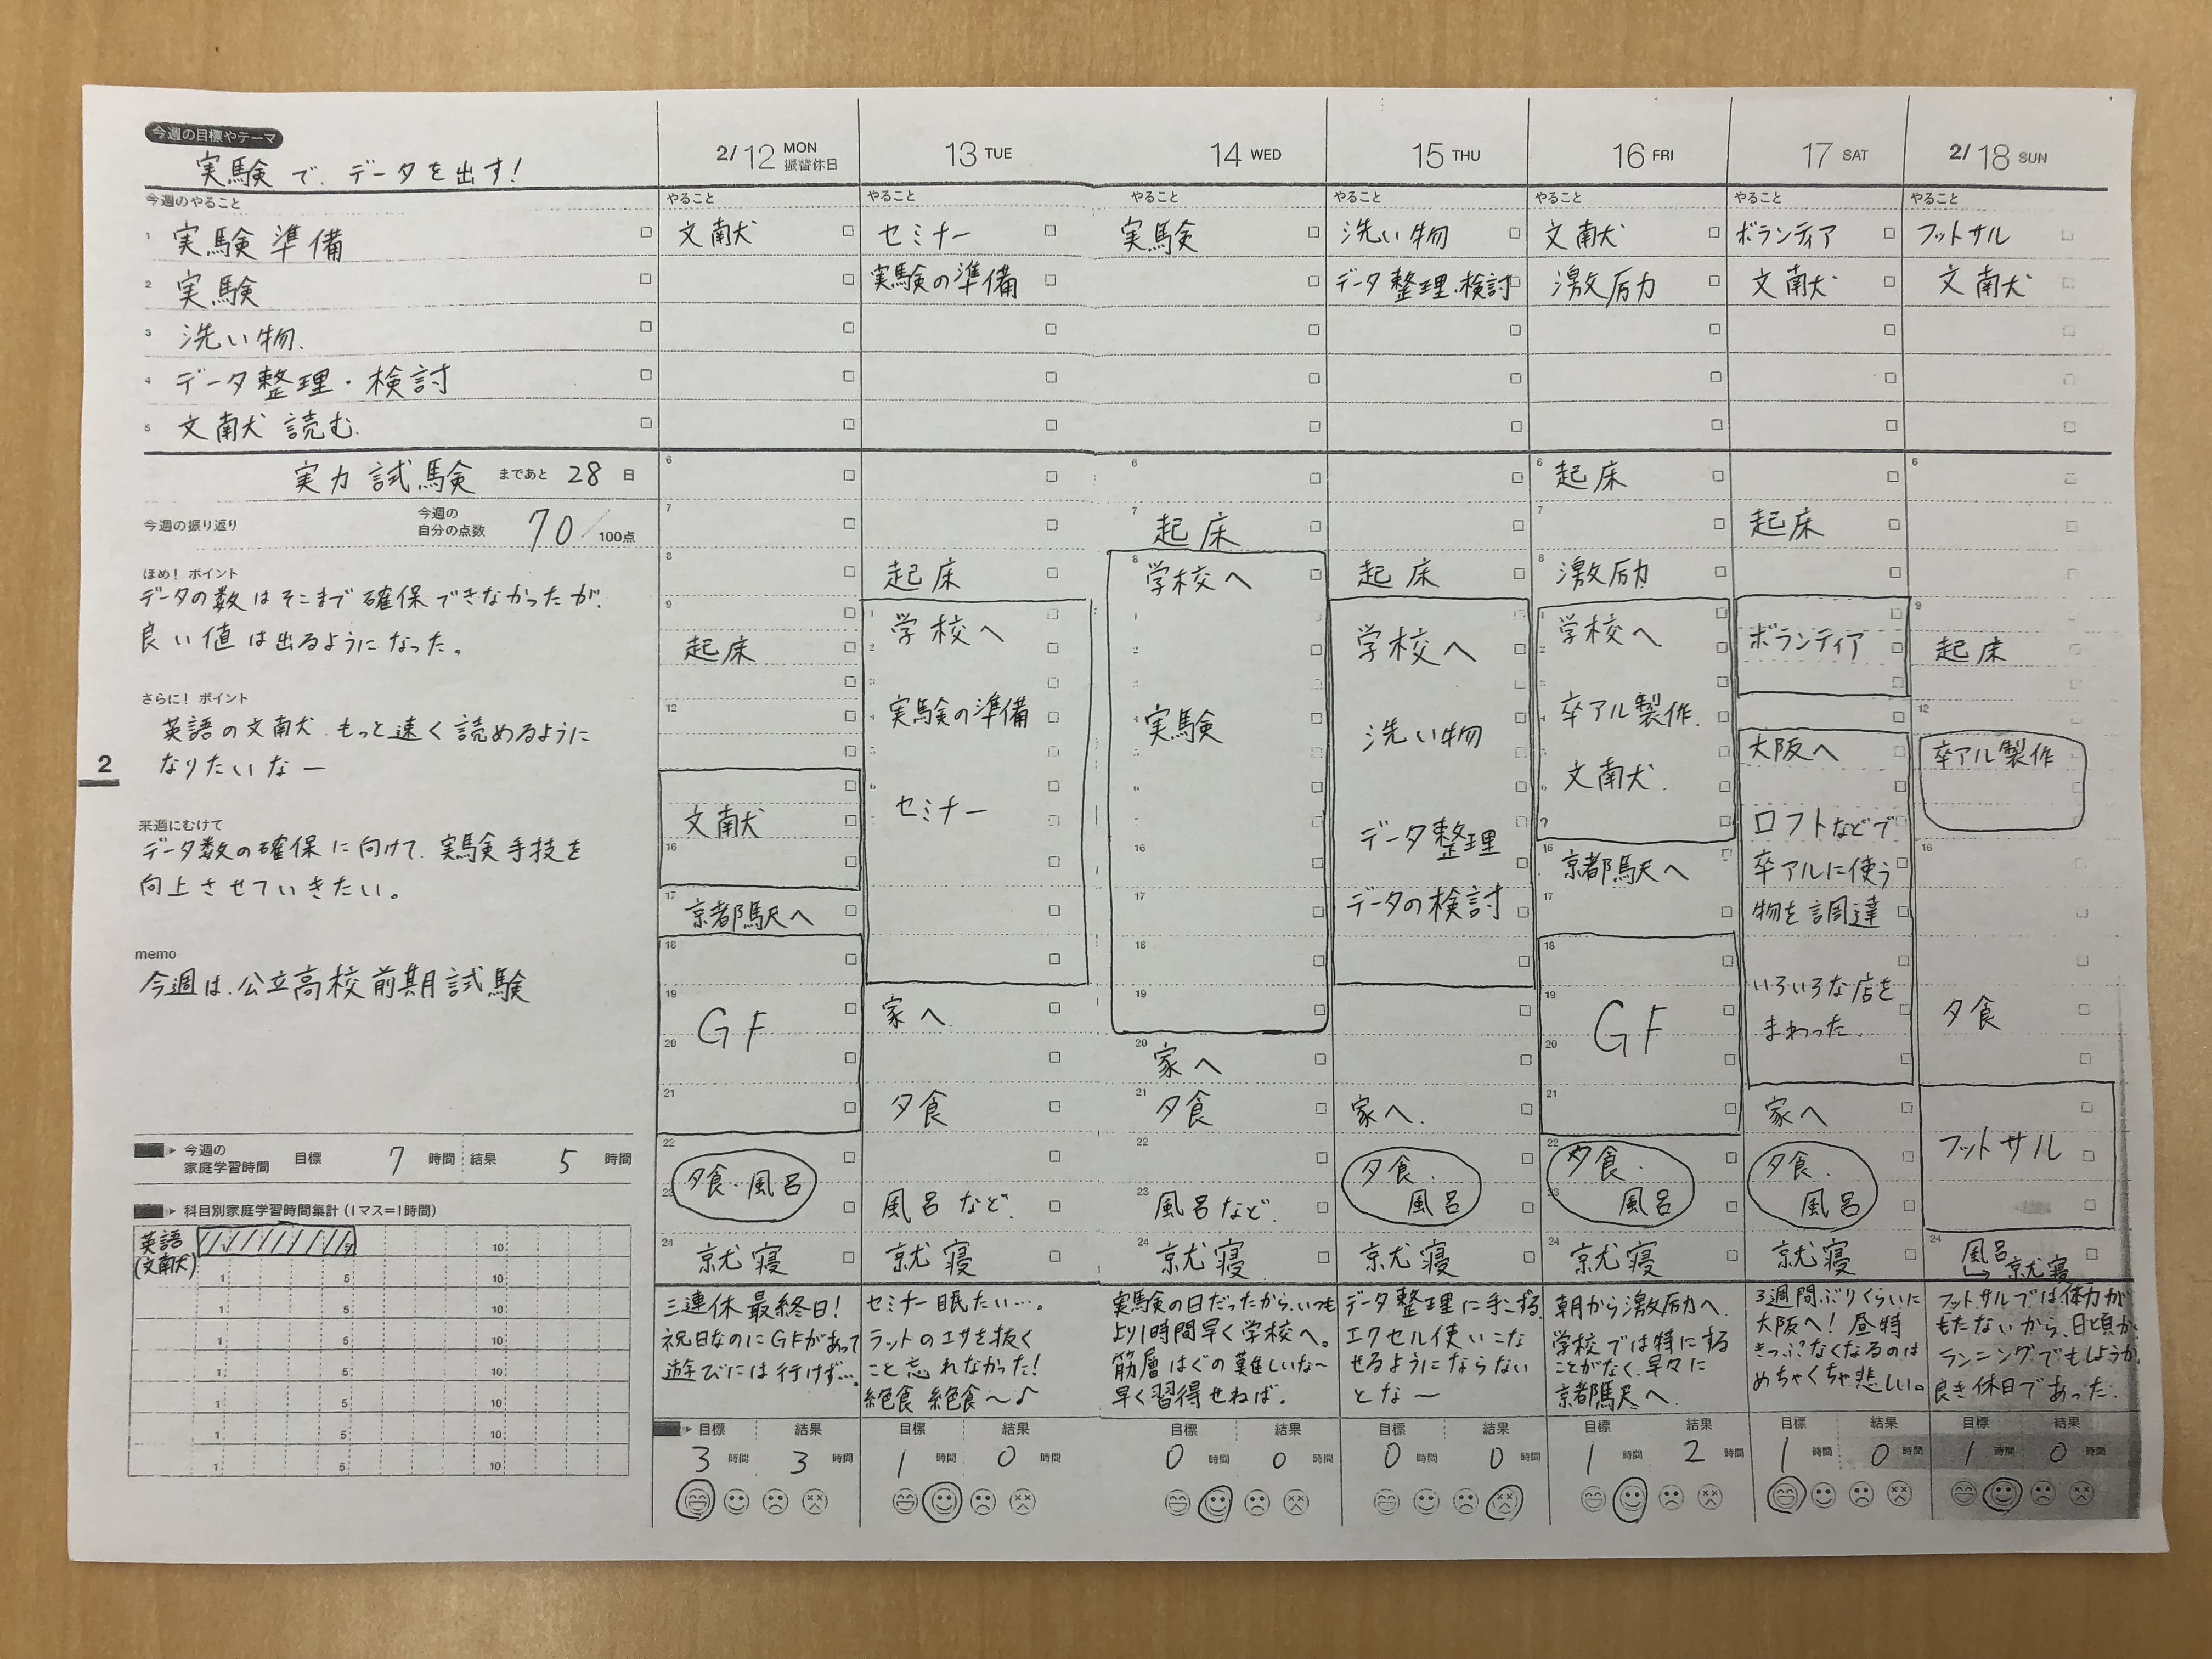 今週の目標やテーマ
実験で、データを出す!
今週のやること
1 実験準備
2 実験
3 洗い物
4 データ整理・検討
5 文献読む
実力試験 まであと 28 日
今週の振り返り
今週の自分の点数 70/100点
ほめ! ポイント
データの数はそこまで確保できなかったが、
良い値は出るようになった。
さらに! ポイント
英語の文献、もっと速く読めるように
なりたいなー
2
来週にむけて
データ数の確保に向けて、実験手技を
向上させていきたい。
memo
今週は、公立高校前期試験
今週の家庭学習時間 目標 7 時間 結果 5 時間
科目別家庭学習時間集計 (1マス=1時間)
英語
(文献)
1 5 10
1 5 10
1 5 10
1 5 10
1 5 10
1 5 10
1 5 10
2/12 MON
振替休日
やること
文献
6
7
8
9
起床
12
文献
16
17
京都駅へ
18
GF
19
20
21
22
夕食・風呂
23
24
就寝
三連休最終日!
祝日なのにGFがあって
遊びには行けず…。
目標 結果
3 時間 3 時間
13 TUE
やること
セミナー
実験の準備
起床
学校へ
実験の準備
セミナー
家へ
夕食
風呂など
就寝
セミナー眠たい…。
ラットのエサを抜く
こと忘れなかった!
絶食 絶食〜♪
目標 結果
1 時間 0 時間
14 WED
やること
実験
6
7
起床
8
学校へ
実験
16
17
18
19
20
家へ
21
夕食
22
23
風呂など
24
就寝
実験の日だったから、いつも
より1時間早く学校へ。
筋層はぐの難しいな〜
早く習得せねば。
目標 結果
0 時間 0 時間
15 THU
やること
洗い物
データ整理・検討
起床
学校へ
洗い物
データ整理
データの検討
家へ
夕食・
風呂
就寝
データ整理に手こずる。
エクセル使いこな
せるようにならない
となー
目標 結果
0 時間 0 時間
16 FRI
やること
文献
激励
6
起床
7
8
激励
学校へ
卒アル製作
文献
16
京都駅へ
17
18
GF
19
20
21
22
夕食・
風呂
23
24
就寝
朝から激励へ。
学校では特にする
ことがなく、早々に
京都駅へ
目標 結果
1 時間 2 時間
17 SAT
やること
ボランティア
文献
起床
ボランティア
大阪へ
ロフトなどで
卒アルに使う
物を調達
いろいろな店を
まわった
家へ
夕食・
風呂
就寝
3週間ぶりくらいに
大阪へ! 昼特
きっぷなくなるのは
めちゃくちゃ悲しい。
目標 結果
1 時間 0 時間
2/18 SUN
やること
フットサル
文献
6
9
起床
12
卒アル製作
16
夕食
フットサル
24
風呂
→就寝
フットサルでは体力が
もたないから、日頃から
ランニングでもしようか
良き休日であった。
目標 結果
1 時間 0 時間